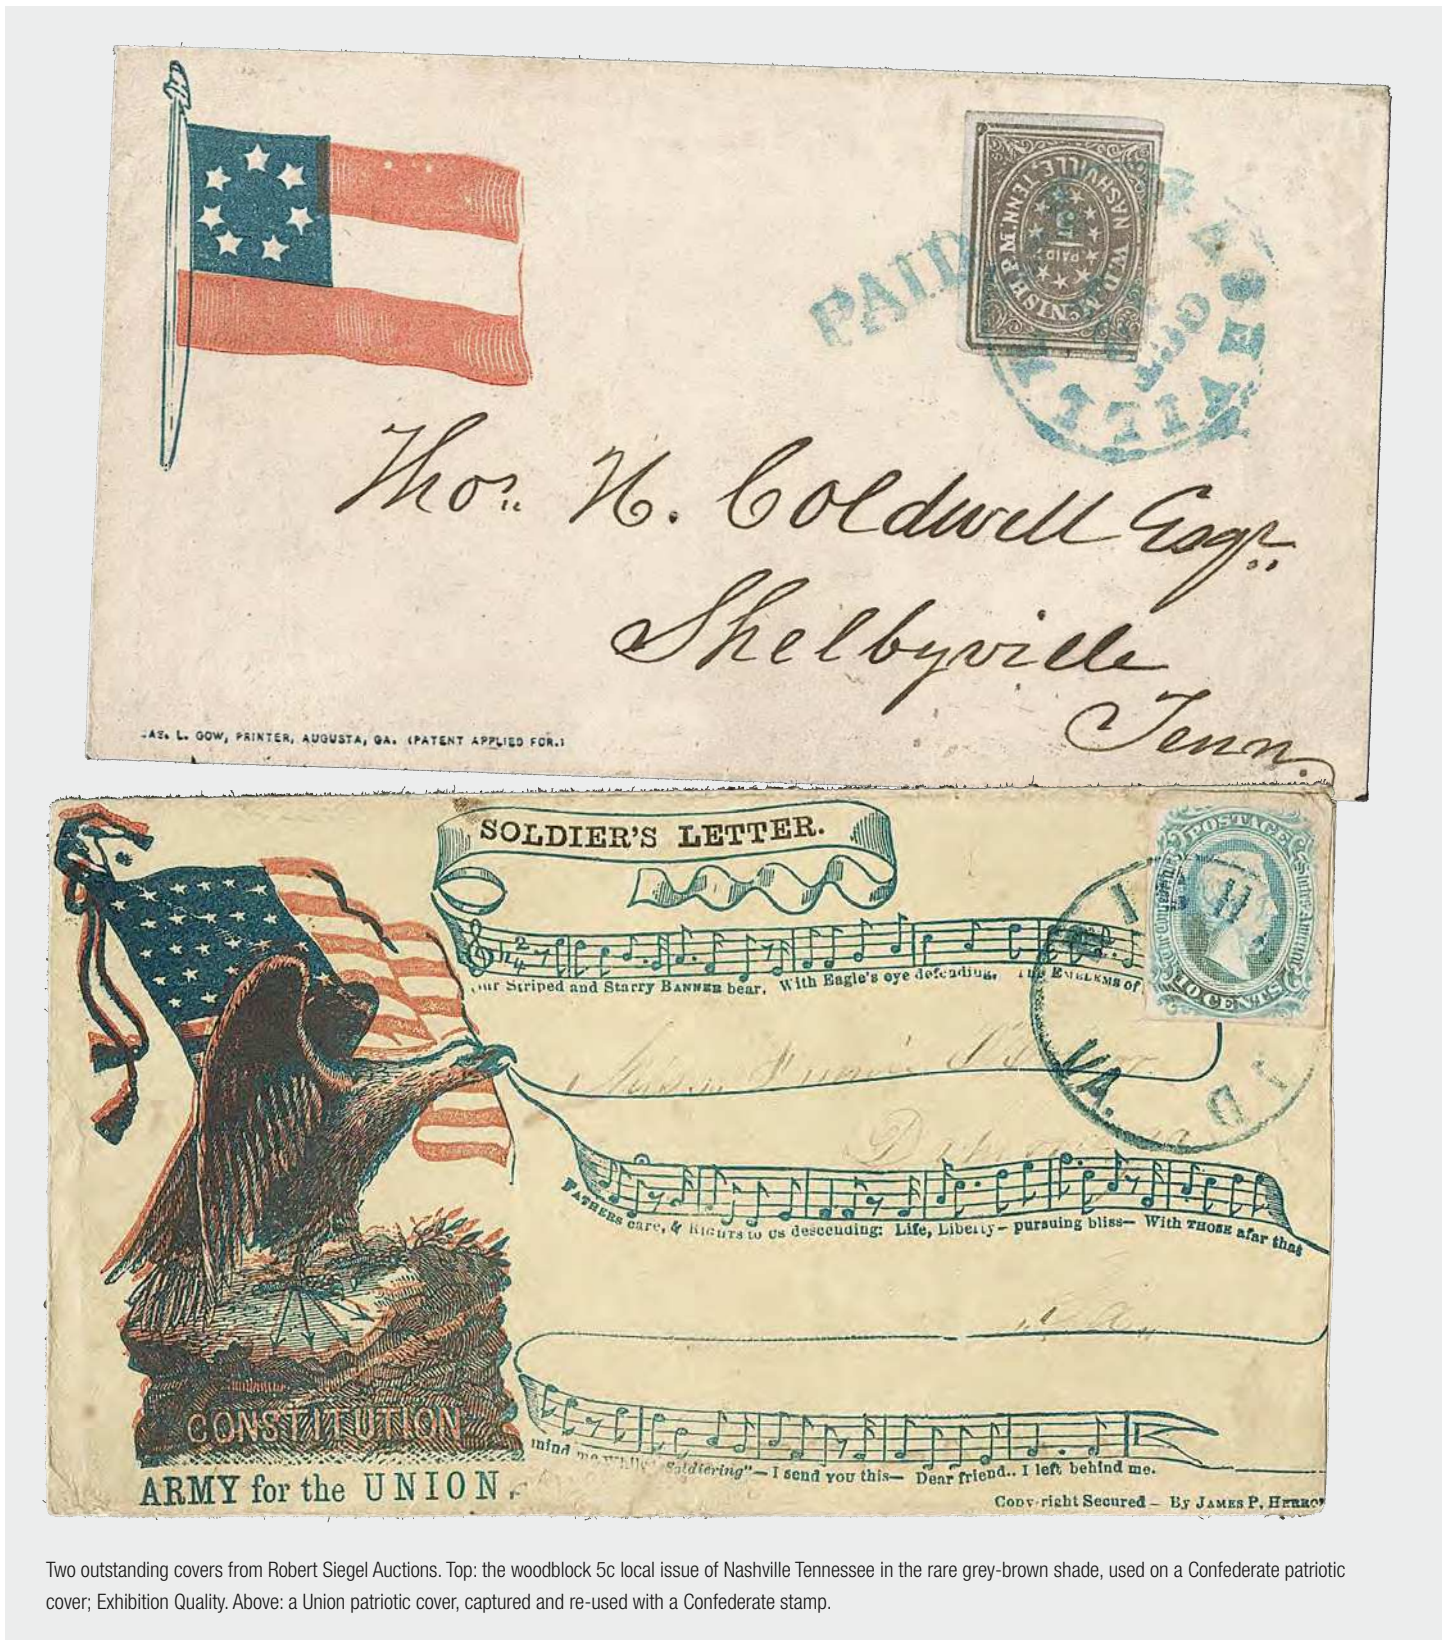 PAID
NASHVILLE, TENN.
W.D. McNISH P.M.
PAID
Thos. H. Coldwell Esqr.
Shelbyville
Tenn.
JAS. L. GOW, PRINTER, AUGUSTA, GA. (PATENT APPLIED FOR.)
SOLDIER'S LETTER.
POSTAGE
10 CENTS
our Striped and Starry BANNER bear, With Eagle's eye defending, The EMBLEMS of
VA.
FATHERS care, & RIGHTS to us descending: Life, Liberty – pursuing bliss – With THOSE afar that
mind me while "Soldiering" – I send you this – Dear friend.. I left behind me.
CONSTITUTION
ARMY for the UNION.
Copy-right Secured – By JAMES P. HERRON
Two outstanding covers from Robert Siegel Auctions. Top: the woodblock 5c local issue of Nashville Tennessee in the rare grey-brown shade, used on a Confederate patriotic
cover; Exhibition Quality. Above: a Union patriotic cover, captured and re-used with a Confederate stamp.